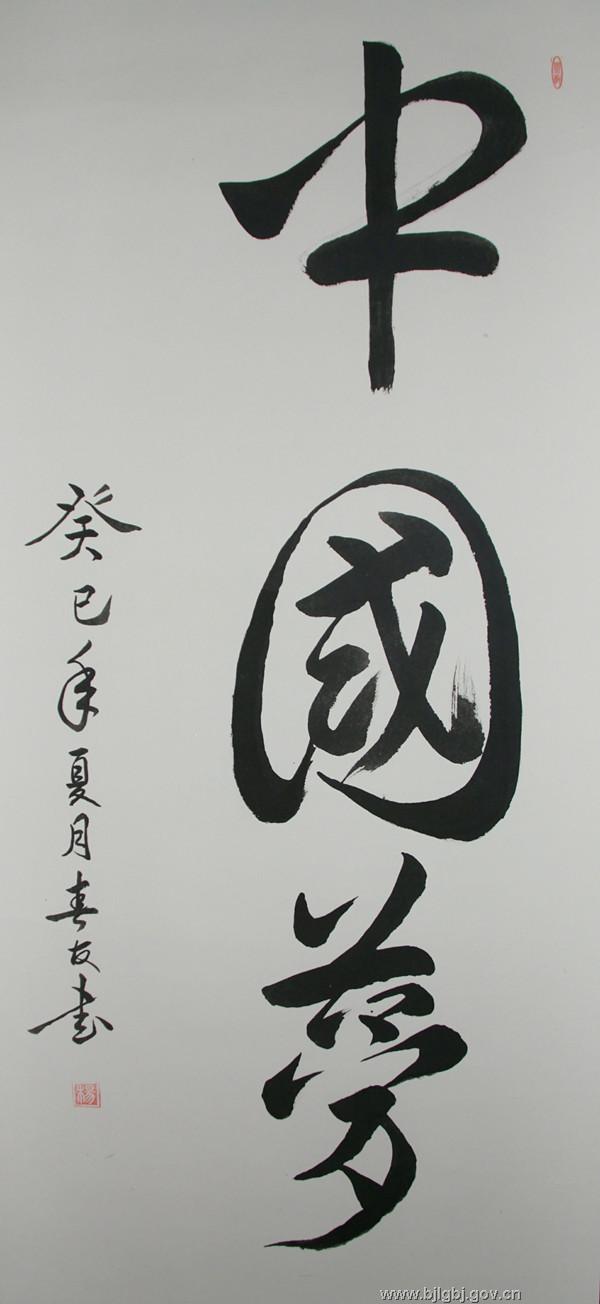 中國夢
癸巳年夏月春友书
www.bjlgbj.gov.cn